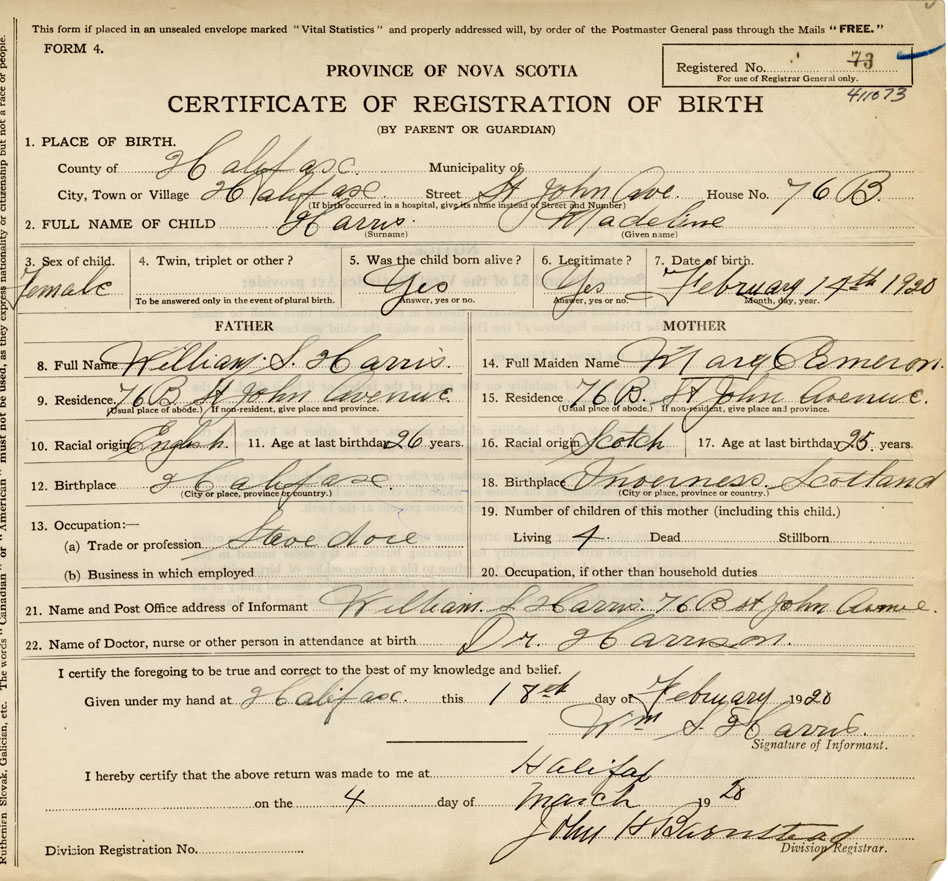 This form if placed in an unsealed envelope marked "Vital Statistics" and properly addressed will, by order of the Postmaster General pass through the Mails "FREE."
FORM 4.
Registered No. 73
For use of Registrar General only.
411073
PROVINCE OF NOVA SCOTIA
CERTIFICATE OF REGISTRATION OF BIRTH
(BY PARENT OR GUARDIAN)
1. PLACE OF BIRTH.
County of Halifax. Municipality of
City, Town or Village Halifax. Street St John Ave. House No. 76 B.
(If birth occurred in a hospital, give its name instead of Street and Number)
2. FULL NAME OF CHILD Harris. Madeline
(Surname) (Given name)
3. Sex of child. 4. Twin, triplet or other? 5. Was the child born alive? 6. Legitimate? 7. Date of birth.
Female Yes Yes February 14th 1920
To be answered only in the event of plural birth. Answer, yes or no. Answer, yes or no. Month, day, year.
FATHER MOTHER
8. Full Name William S. Harris. 14. Full Maiden Name Mary Cameron.
9. Residence 76 B. St John Avenue. 15. Residence 76 B. St John Avenue.
(Usual place of abode.) If non-resident, give place and province. (Usual place of abode.) If non-resident, give place and province.
10. Racial origin English. 11. Age at last birthday 26 years. 16. Racial origin Scotch 17. Age at last birthday 25 years.
12. Birthplace Halifax. 18. Birthplace Inverness. Scotland
(City or place, province or country.) (City or place, province or country.)
13. Occupation:— 19. Number of children of this mother (including this child.)
(a) Trade or profession Stevedore Living 4 Dead Stillborn
(b) Business in which employed 20. Occupation, if other than household duties
21. Name and Post Office address of Informant William S Harris 76 B St John Avenue.
22. Name of Doctor, nurse or other person in attendance at birth Dr. Harrison.
I certify the foregoing to be true and correct to the best of my knowledge and belief.
Given under my hand at Halifax. this 18th day of February 1920
Wm S. Harris.
Signature of Informant.
I hereby certify that the above return was made to me at Halifax
on the 4 day of March 1920
John H Barnstead
Division Registration No. Division Registrar.
Ruthenian Slovak, Galician, etc. The words "Canadian" or "American" must not be used, as they express nationality or citizenship but not a race or people.